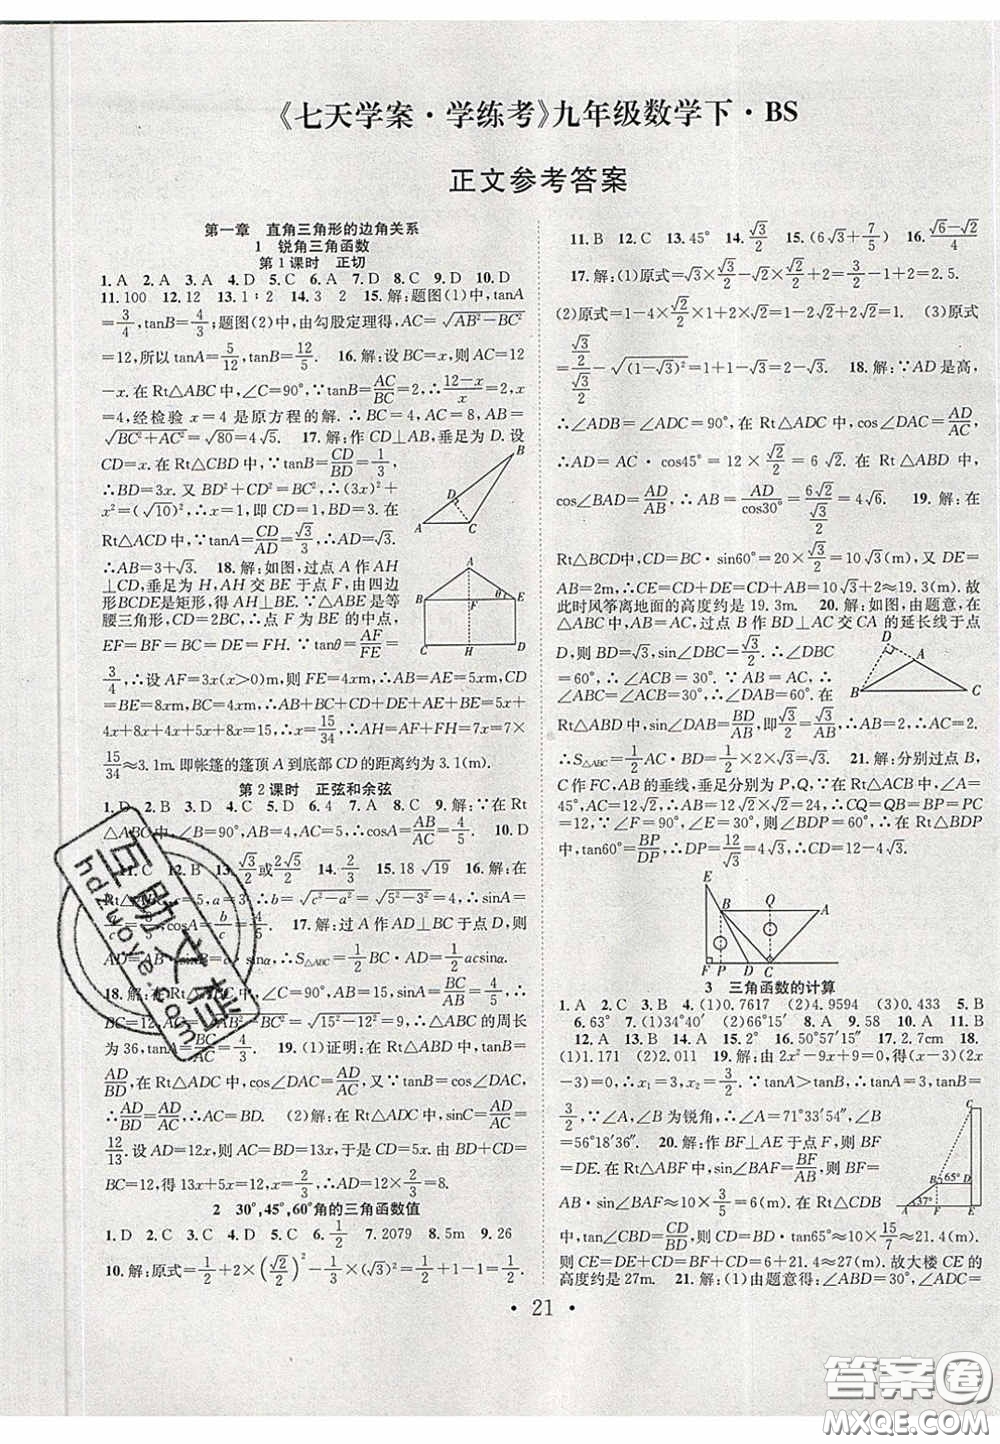 《七天学案·学练考》九年级数学下·BS
正文参考答案
第一章 直角三角形的边角关系
1 锐角三角函数
第1课时 正切
1.A 2.A 3.A 4.D 5.C 6.A 7.D 8.C 9.D 10.D
11.100 12.12 13.1∶2 14.3 2 15.解:题图(1)中,tanA
=3/4,tanB=4/3;题图(2)中,由勾股定理得,AC=√(AB²−BC²)
=12,所以tanA=5/12,tanB=12/5. 16.解:设BC=x,则AC=12
−x.在Rt△ABC中,∠C=90°,∵tanB=AC/BC=2,∴(12−x)/x=2,x
=4,经检验 x=4 是原方程的解.∴BC=4,AC=8,∴AB=
√(BC²+AC²)=√80=4√5. 17.解:作CD⊥AB,垂足为D.设
CD=x.在Rt△CBD中,∵tanB=CD/BD=1/3,
∴BD=3x.又∵BD²+CD²=BC²,∴(3x)²+
x²=(√10)²,∴x=1.即CD=1,BD=3.在
Rt△ACD中,∵tanA=CD/AD=√3/3,∴AD=√3.
∴AB=3+√3. 18.解:如图,过点A作AH⊥
CD,垂足为H,AH交BE于点F,由四边
形BCDE是矩形,得AH⊥BE.∵△ABE是等
腰三角形,CD=2BC,∴点F为BE的中点,
EF=BF=BC=DE.∵tanθ=AF/FE=
3/4,∴设AF=3x(x>0)m,则FE=4x m,AE=5x m,CD
=BE=8x m,∴AB+BC+CD+DE+AE+BE=5x+
4x+8x+4x+5x+8x=15,∴x=15/34,∴AH=AF+FH=7x=7×
15/34≈3.1m.即帐篷的篷顶A到底部CD的距离约为3.1(m).
第2课时 正弦和余弦
1.D 2.B 3.A 4.D 5.D 6.4 7.A 8.C 9.解:在Rt
△ABC中,∠B=90°,AB=4,AC=5,∴cosA=AB/AC=4/5. 10.D
11.C 12.B 13.√3/2或2√5/5 14.2/3 15.18 √19 16.解:在
=5,a=3,∴b=√(c²−a²)=√(5²−3²)=4,∴sinA=
,cosA=b/c=4/5. 17.解:作AD⊥BC于点D,则
AD=AB·sinα=c·sinα,∴S△ABC=1/2BC·AD=1/2acsinα.
18.解:在Rt△ABC中,∠C=90°,AB=15,sinA=BC/AB=4/5,∴
BC=12,AC=√(AB²−BC²)=√(15²−12²)=9.∴△ABC的周长
为36,tanA=BC/AC=4/3. 19.(1)证明:在Rt△ABD中,tanB=
AD/BD,在Rt△ADC中,cos∠DAC=AD/AC,又∵tanB=cos∠DAC,
∴AD/BD=AD/AC,∴AC=BD. (2)解:在Rt△ADC中,sinC=AD/AC=
12/13.设AD=12x,则AC=13x,DC=5x,BD=13x.由BD+CD=
BC=12,得13x+5x=12,∴x=2/3,∴AD=12x=12×2/3=8.
2 30°,45°,60°角的三角函数值
1.D 2.C 3.C 4.D 5.C 6.1/2 7.2079 8.5m 9.26
10.解:原式=1/2+2×(√2/2)²−1/3×(√3)²=1/2+1−1=1/2.
11.B 12.C 13.45° 14.√3/2 15.(6√3+7/5) 16.(√6−√2)/4
17.解:(1)原式=√3×√3/2+√2×√2/2=3/2+2/2=1.5+1=2.5.
(2)原式=1−4×√2/2×1+2×√2/2=1−2√2+√2=1−√2. (3)原式=
(√3/2)/(√3/2)−√(1−√3)²=1+1−√3=2−√3. 18.解:∵AD是高,
∴∠ADB=∠ADC=90°,在Rt△ADC中,cos∠DAC=AD/AC,
∴AD=AC·cos45°=12×√2/2=6√2.在Rt△ABD中,
cos∠BAD=AD/AB,∴AB=AD/cos30°=6√2/(√3/2)=4√6. 19.解:在
Rt△BCD中,CD=BC·sin60°=20×√3/2=10√3(m),又DE=
AB=2m,∴CE=CD+DE=CD+AB=10√3+2≈19.3(m).故
此时风筝离地面的高度约是19.3m. 20.解:如图,由题意,在
△ABC中,AB=AC,过点B作BD⊥AC交CA的延长线于点
D,则BD=√3,∠DBC
=60°,∴∠C=30°.∵AB=AC,∴∠ABC
=∠ACB=30°.∴∠DAB=60°.在
Rt△ADB中,sin∠DAB=BD/AB,即√3/2=√3/AB,∴AB=2=AC=2.
∴S△ABC=1/2AC·BD=1/2×2×√3=√3. 21.解:分别过点B、
C作FC,AB的垂线,垂足为P,Q,在Rt△AQC中,∠A
=45°,AC=12√2,∴CQ=BP=12.∵∠ABC=45°,∴BQ=PC
=12,∵∠F=90°,∠E=30°,∴∠BDP=60°.∴在Rt△BDP
中,tan60°=BP/DP,∴DP=12/√3=4√3.∴CD=12−4√3.
3 三角函数的计算
1.A 2.C 3.B 4.(1)0.7617 (2)4.9594 (3)0.433 5.B
6.63° 7.(1)34°40′ (2)66°2′ 8.A 9.58 10.A 11.B
12.A 13.A 14.B 15.A 16.50°57′15″ 17.2.7cm 18.
(1)1.171 (2)2.011 19.解:由2x²−9x+9=0,得(x−3)(2x
−3)=0.∴x₁=3,x₂=3/2.∵tanA>tanB,∴tanA=3,tanB=
3/2.∵∠A,∠B为锐角,∴∠A=71°33′54″,∠B
=56°18′36″. 20.解:作BF⊥AE于点F,则BF
=DE.在Rt△ABF中,sin∠BAF=BF/AB,则BF=
AB·sin∠BAF≈10×3/5=6.在Rt△CDB
中,tan∠CBD=CD/BD,则CD=BD·tan65°≈10×15/7≈21.4(m).
则CE=DE+CD=BF+CD=6+21.4≈27(m).故大楼CE的
高度约是27m. 21.解:(1)由题意得:∠ABD=30°,∠ADC=
A
B
C
D
A
B
E
F
θ
C
H
D
D
A
B
C
E
B
Q
A
F
P
D
C
C
B
65°
D
A
37°
F
E
·21·
互助文档
hdzwoye.com
答案圈
MXQE.COM